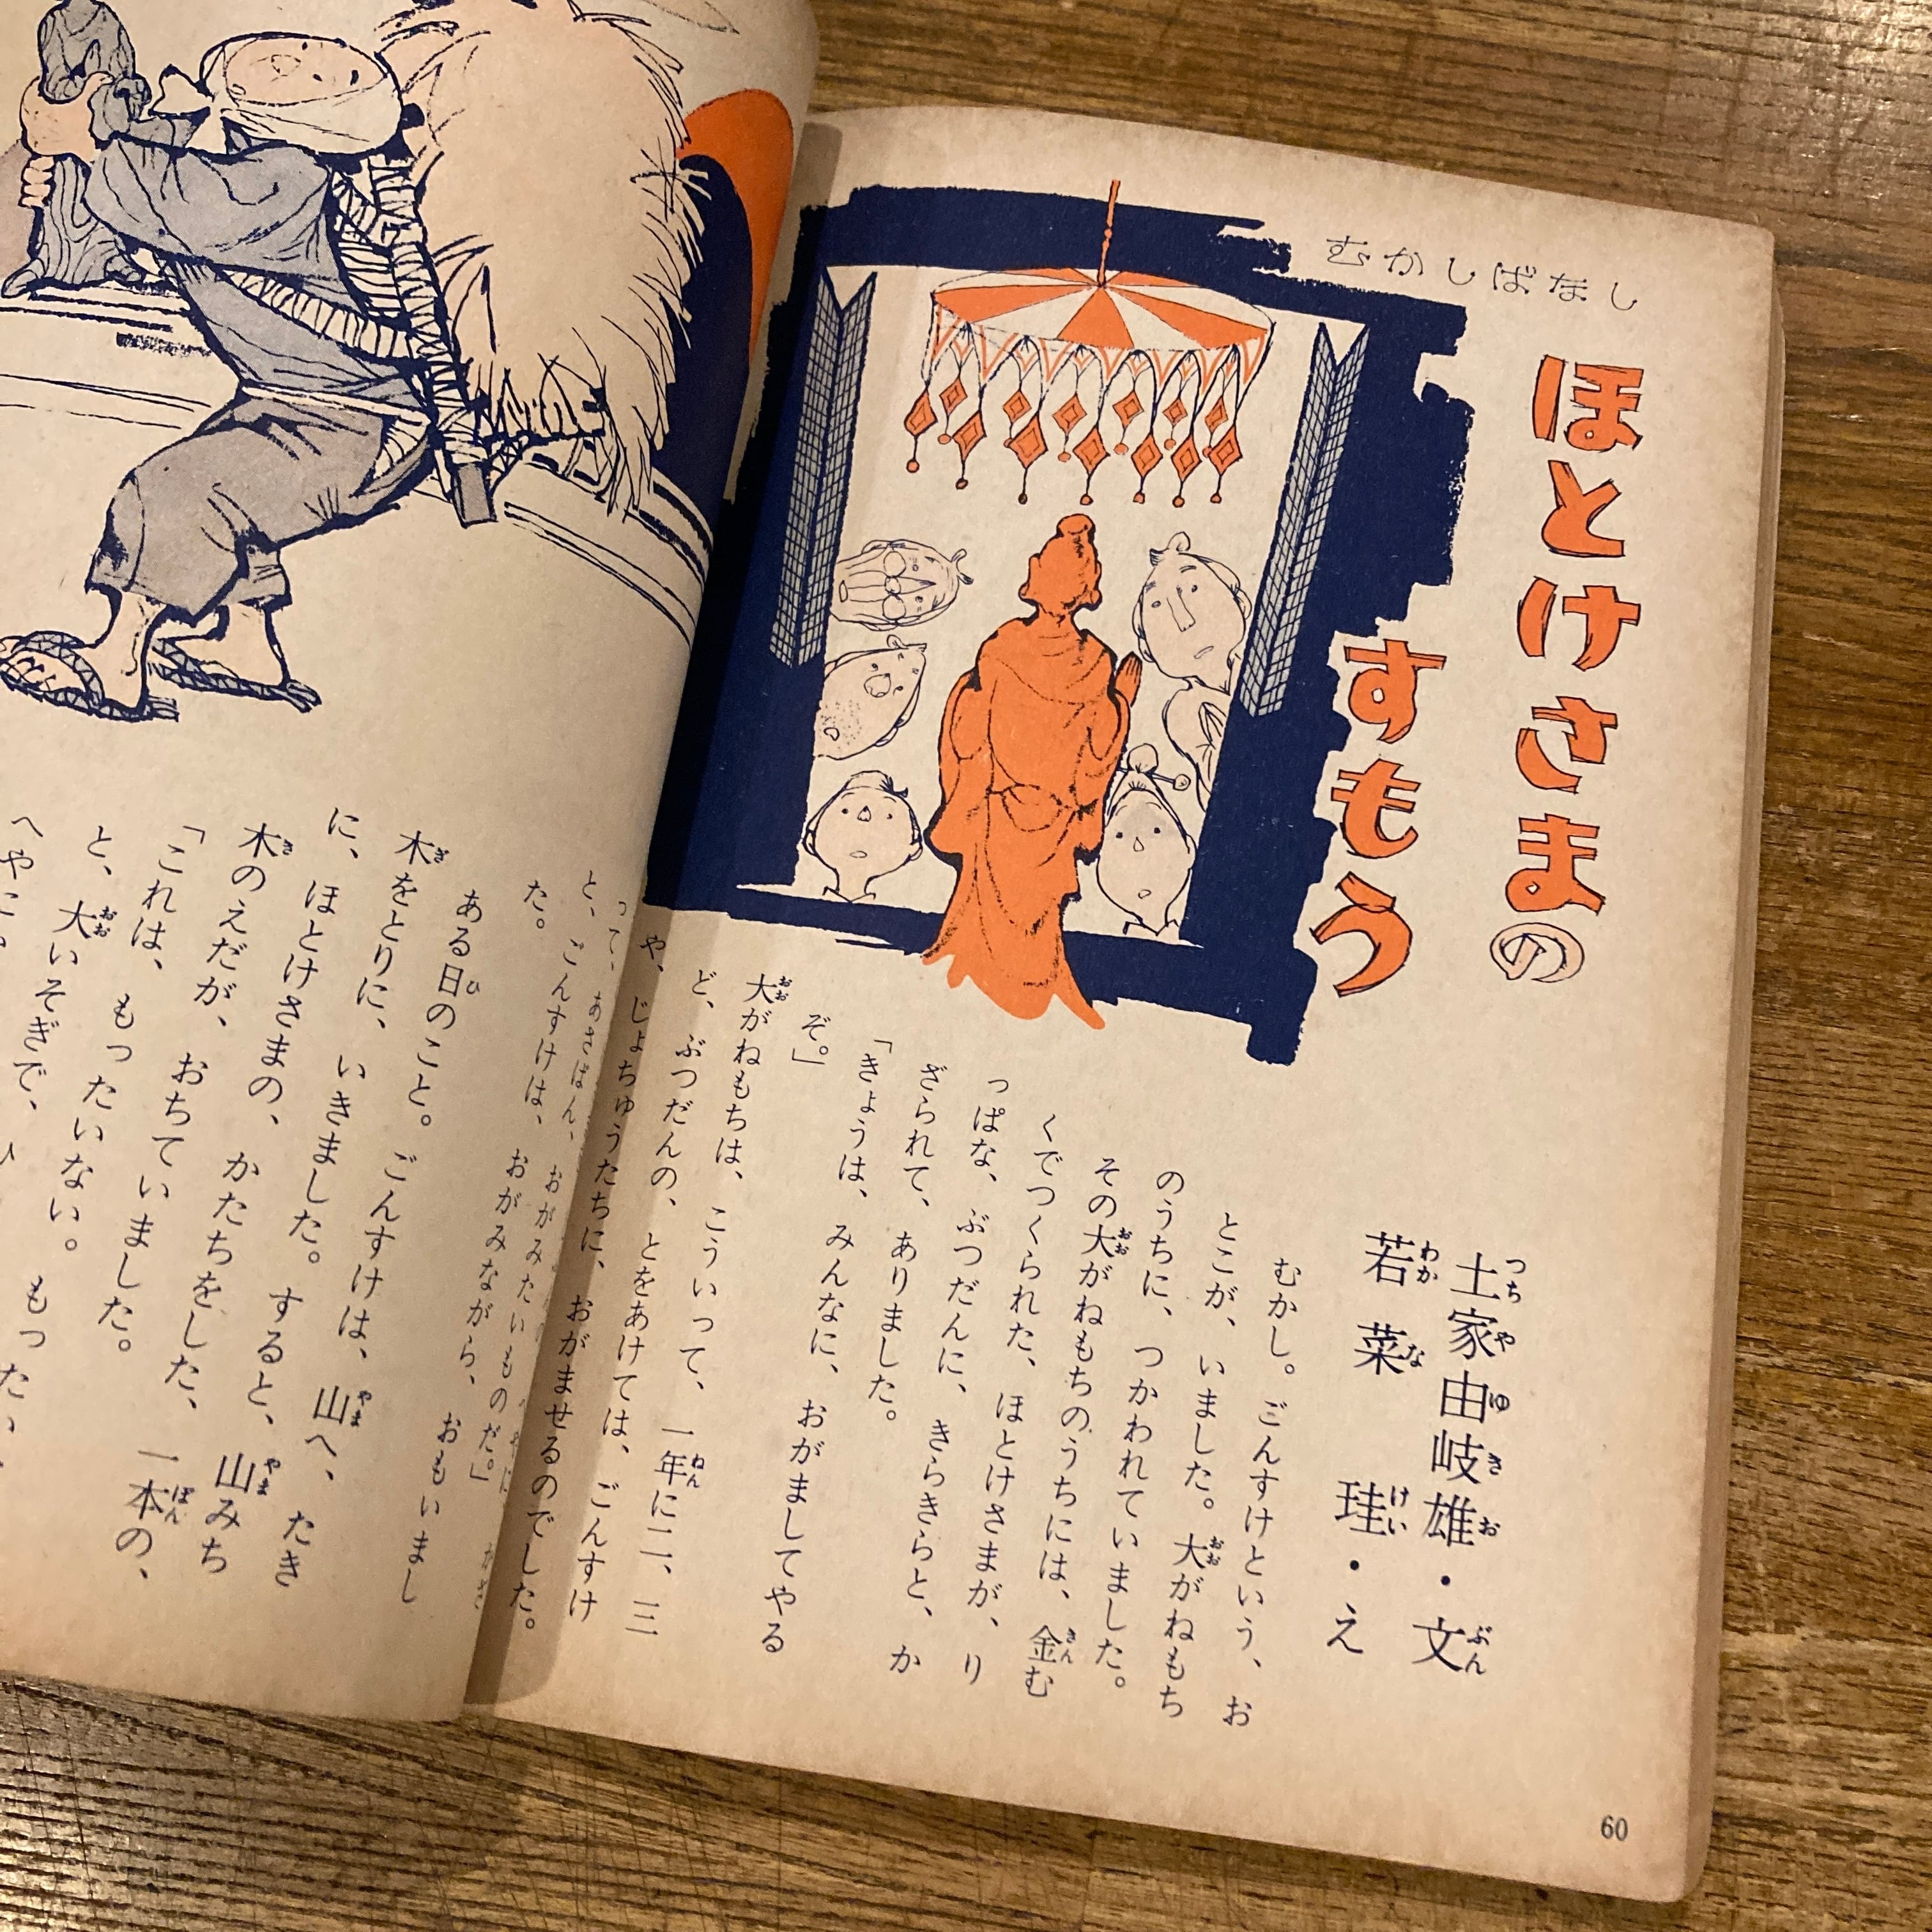 むかしばなし
ほとけさまの
すもう
土家由岐雄・文
つちやゆきおぶん
若菜珪・え
わかなけい
むかし。ごんすけという、お
とこが、いました。大がねもち
のうちに、つかわれていました。
その大がねもちのうちには、金む
くでつくられた、ほとけさまが、り
っぱな、ぶつだんに、きらきらと、か
ざられて、ありました。
「きょうは、みんなに、おがましてやる
ぞ。」
大がねもちは、こういって、一年に二、三
ど、ぶつだんの、とをあけては、ごんすけ
や、じょちゅうたちに、おがませるのでした。
って、あさばん、おがみたいものだ。」
と、ごんすけは、おがみながら、おもいまし
た。
ある日のこと。ごんすけは、山へ、たき
木をとりに、いきました。すると、山みち
に、ほとけさまの、かたちをした、一本の、
木のえだが、おちていました。
「これは、もったいない。もったい
と、大いそぎで、ひ
へやに、
60